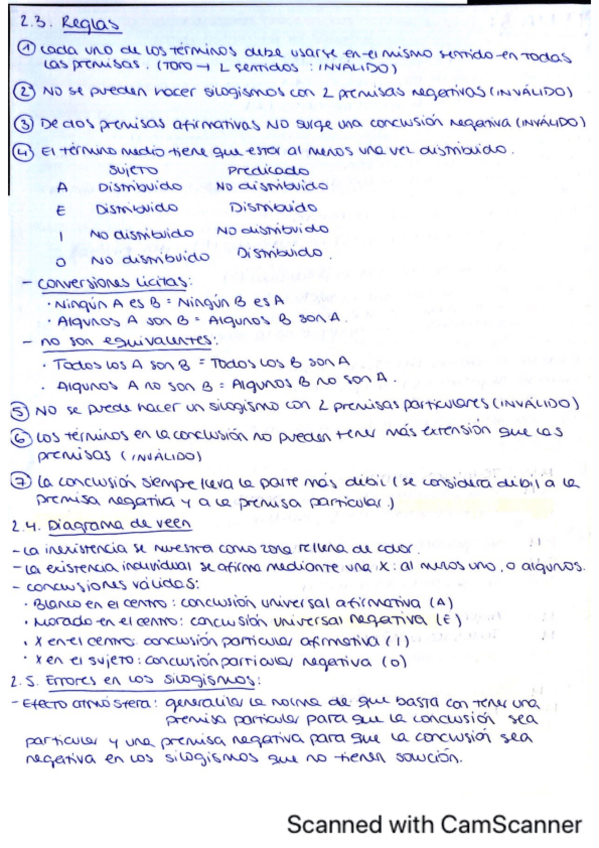 2.3. Reglas
① Cada uno de los términos debe usarse en el mismo sentido en todas
las premisas. (TORO → 2 sentidos : INVÁLIDO)
② No se pueden hacer silogismos con 2 premisas negativas (INVÁLIDO)
③ De dos premisas afirmativas NO surge una conclusión negativa (INVÁLIDO)
④ El término medio tiene que estar al menos una vez distribuido.
Sujeto Predicado
A Distribuido No distribuido
E Distribuido Distribuido
I No distribuido No distribuido
O No distribuido Distribuido.
- conversiones lícitas:
· Ningún A es B = Ningún B es A
· Algunos A son B = Algunos B son A.
- no son equivalentes:
· Todos los A son B = Todos los B son A
· Algunos A no son B = Algunos B no son A.
⑤ No se puede hacer un silogismo con 2 premisas particulares (INVÁLIDO)
⑥ Los términos en la conclusión no pueden tener más extensión que las
premisas (INVÁLIDO)
⑦ La conclusión siempre lleva la parte más débil (se considera débil a la
premisa negativa y a la premisa particular.)
2.4. Diagrama de veen
- La inexistencia se muestra como zona rellena de color.
- La existencia individual se afirma mediante una X: al menos uno, o algunos.
- conclusiones válidas:
· Blanco en el centro: conclusión universal afirmativa (A)
· Morado en el centro: conclusión universal negativa (E)
· X en el centro: conclusión particular afirmativa (I)
· X en el sujeto: conclusión particular negativa (O)
2.5. Errores en los silogismos:
- Efecto atmósfera: generalizar la norma de que basta con tener una
premisa particular para que la conclusión sea
particular y una premisa negativa para que la conclusión sea
negativa en los silogismos que no tienen solución.
Scanned with CamScanner